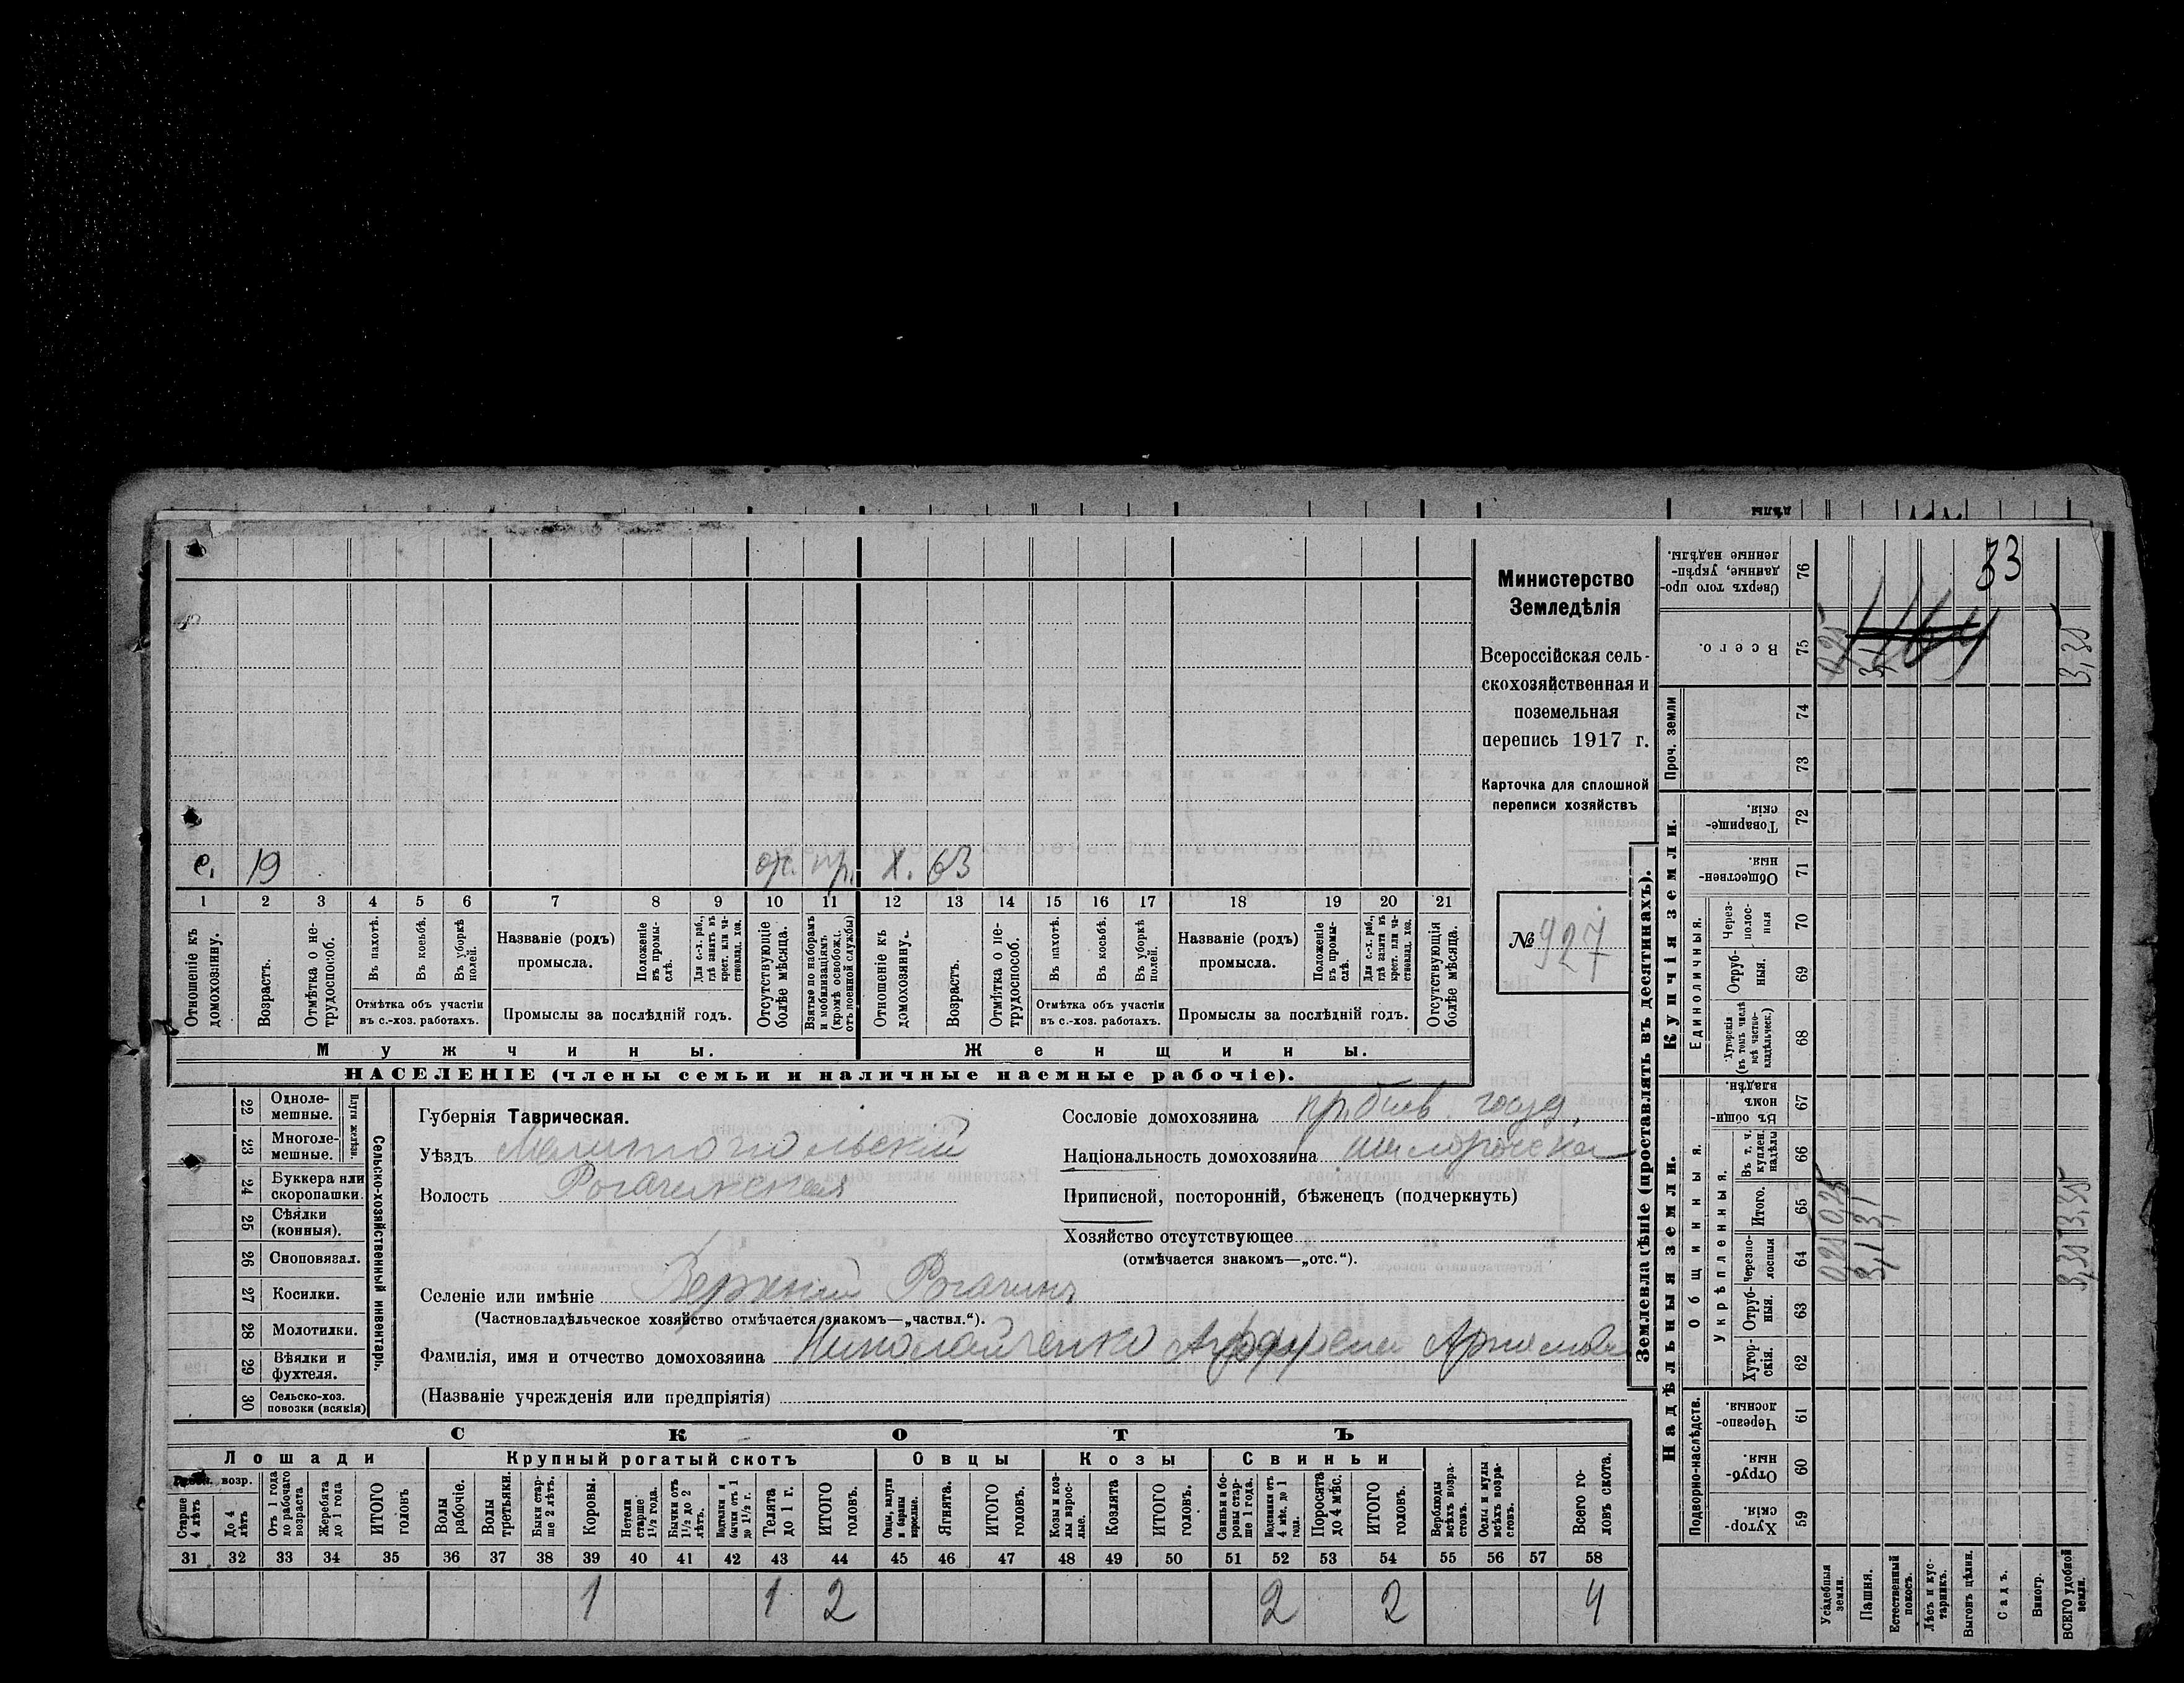 е. 19 от. пр. х. 63
1 2 3 4 5 6 7 8 9 10 11 12 13 14 15 16 17 18 19 20 21
Отношеніе къ домохозяину.
Возрастъ.
Отмѣтка о нетрудоспособ.
Въ пахотѣ.
Въ косьбѣ.
Въ уборкѣ полей.
Отмѣтка объ участіи
въ с.-хоз. работахъ.
Названіе (родъ)
промысла.
Положеніе въ промыслѣ.
Для с.-х. раб., гдѣ занятъ въ крест. или частновлад. хоз.
Промыслы за послѣдній годъ.
Отсутствующіе болѣе мѣсяца.
Взятые по наборамъ и мобилизаціямъ (кромѣ освобожд. отъ военной службы)
Отношеніе къ домохозяину.
Возрастъ.
Отмѣтка о нетрудоспособ.
Въ пахотѣ.
Въ косьбѣ.
Въ уборкѣ полей.
Отмѣтка объ участіи
въ с.-хоз. работахъ.
Названіе (родъ)
промысла.
Положеніе въ промыслѣ.
Для с.-х. раб., гдѣ занятъ въ крест. или частновлад. хоз.
Промыслы за послѣдній годъ.
Отсутствующія болѣе мѣсяца.
Мужчины. Женщины.
НАСЕЛЕНІЕ (члены семьи и наличные наемные рабочіе).
Министерство
Земледѣлія
Всероссійская сель-
скохозяйственная и
поземельная
перепись 1917 г.
Карточка для сплошной
переписи хозяйствъ
№ 927
22 Одноле-
мешные.
23 Многоле-
мешные.
Плуги желѣзн.
24 Буккера или
скоропашки.
25 Сѣялки
(конныя).
26 Сноповязал.
27 Косилки.
28 Молотилки.
29 Вѣялки и
фухтеля.
30 Сельско-хоз.
повозки (всякія)
Сельско-хозяйственный инвентарь.
Губернія Таврическая.
Уѣздъ Мелитопольскій
Волость Рогачикская
Сословіе домохозяина
Національность домохозяина
Приписной, посторонній, бѣженецъ (подчеркнуть)
Хозяйство отсутствующее
(отмѣчается знакомъ—„отс.“).
Селеніе или имѣніе Верхній Рогачикъ
(Частновладѣльческое хозяйство отмѣчается знакомъ—„частвл.“).
Фамилія, имя и отчество домохозяина Николайченко
(Названіе учрежденія или предпріятія)
СКОТЪ
Лошади Крупный рогатый скотъ Овцы Козы Свиньи
возр.
Старше 4 лѣтъ
До 4 лѣтъ
Отъ 1 года до рабочаго возраста
Жеребята до 1 года
ИТОГО головъ
Волы рабочіе.
Волы третьяки.
Быки старше 2 лѣтъ.
Коровы.
Нетели старше 1½ года.
Бычки отъ 1½ до 2 лѣтъ.
Подтелки и бычки отъ 1 до 1½ г.
Телята до 1 г.
ИТОГО головъ.
Овцы, валухи и бараны взрослые.
Ягнята.
ИТОГО головъ.
Козы и козлы взрослые.
Козлята
ИТОГО головъ.
Свиньи и боровы старше 1 года.
Подсвинки отъ 4 мѣс. до 1 года.
Поросята до 4 мѣс.
ИТОГО головъ.
Верблюды всѣхъ возрастовъ.
Ослы и мулы всѣхъ возрастовъ.
Всего головъ скота.
31 32 33 34 35 36 37 38 39 40 41 42 43 44 45 46 47 48 49 50 51 52 53 54 55 56 57 58
1 1 2 2 2 4
Землевладѣніе (проставлять въ десятинахъ).
Надѣльныя земли. Купчія земли. Проч. земли
Подворно-наслѣдств.
Общинныя.
Укрѣпленныя.
Единоличныя.
Хуторскія 59
Отрубныя 60
Черезполосныя 61
Хуторскія. 62
Отрубныя. 63
Черезполосныя 64
Итого. 65
Въ т. ч. куплен. надѣлы 66
Въ общинномъ владѣн. 67
Хуторскія (въ томъ числѣ всѣ частновладѣльческ.) 68
Отрубныя. 69
Черезполосныя 70
Общественныя 71
Товарищескія. 72
73
74
Всего. 75
Сверхъ того проданные, укрѣпленные надѣлы. 76
33
Усадебныя земли. 0,25 0,25 0,25
Пашня. 3,1 3,1 3,1
Естественный покосъ.
Лѣсъ и кустарникъ.
Выгонъ цѣлин.
Садъ.
Виногр.
ВСЕГО удобной земли. 3,35 3,35 3,35